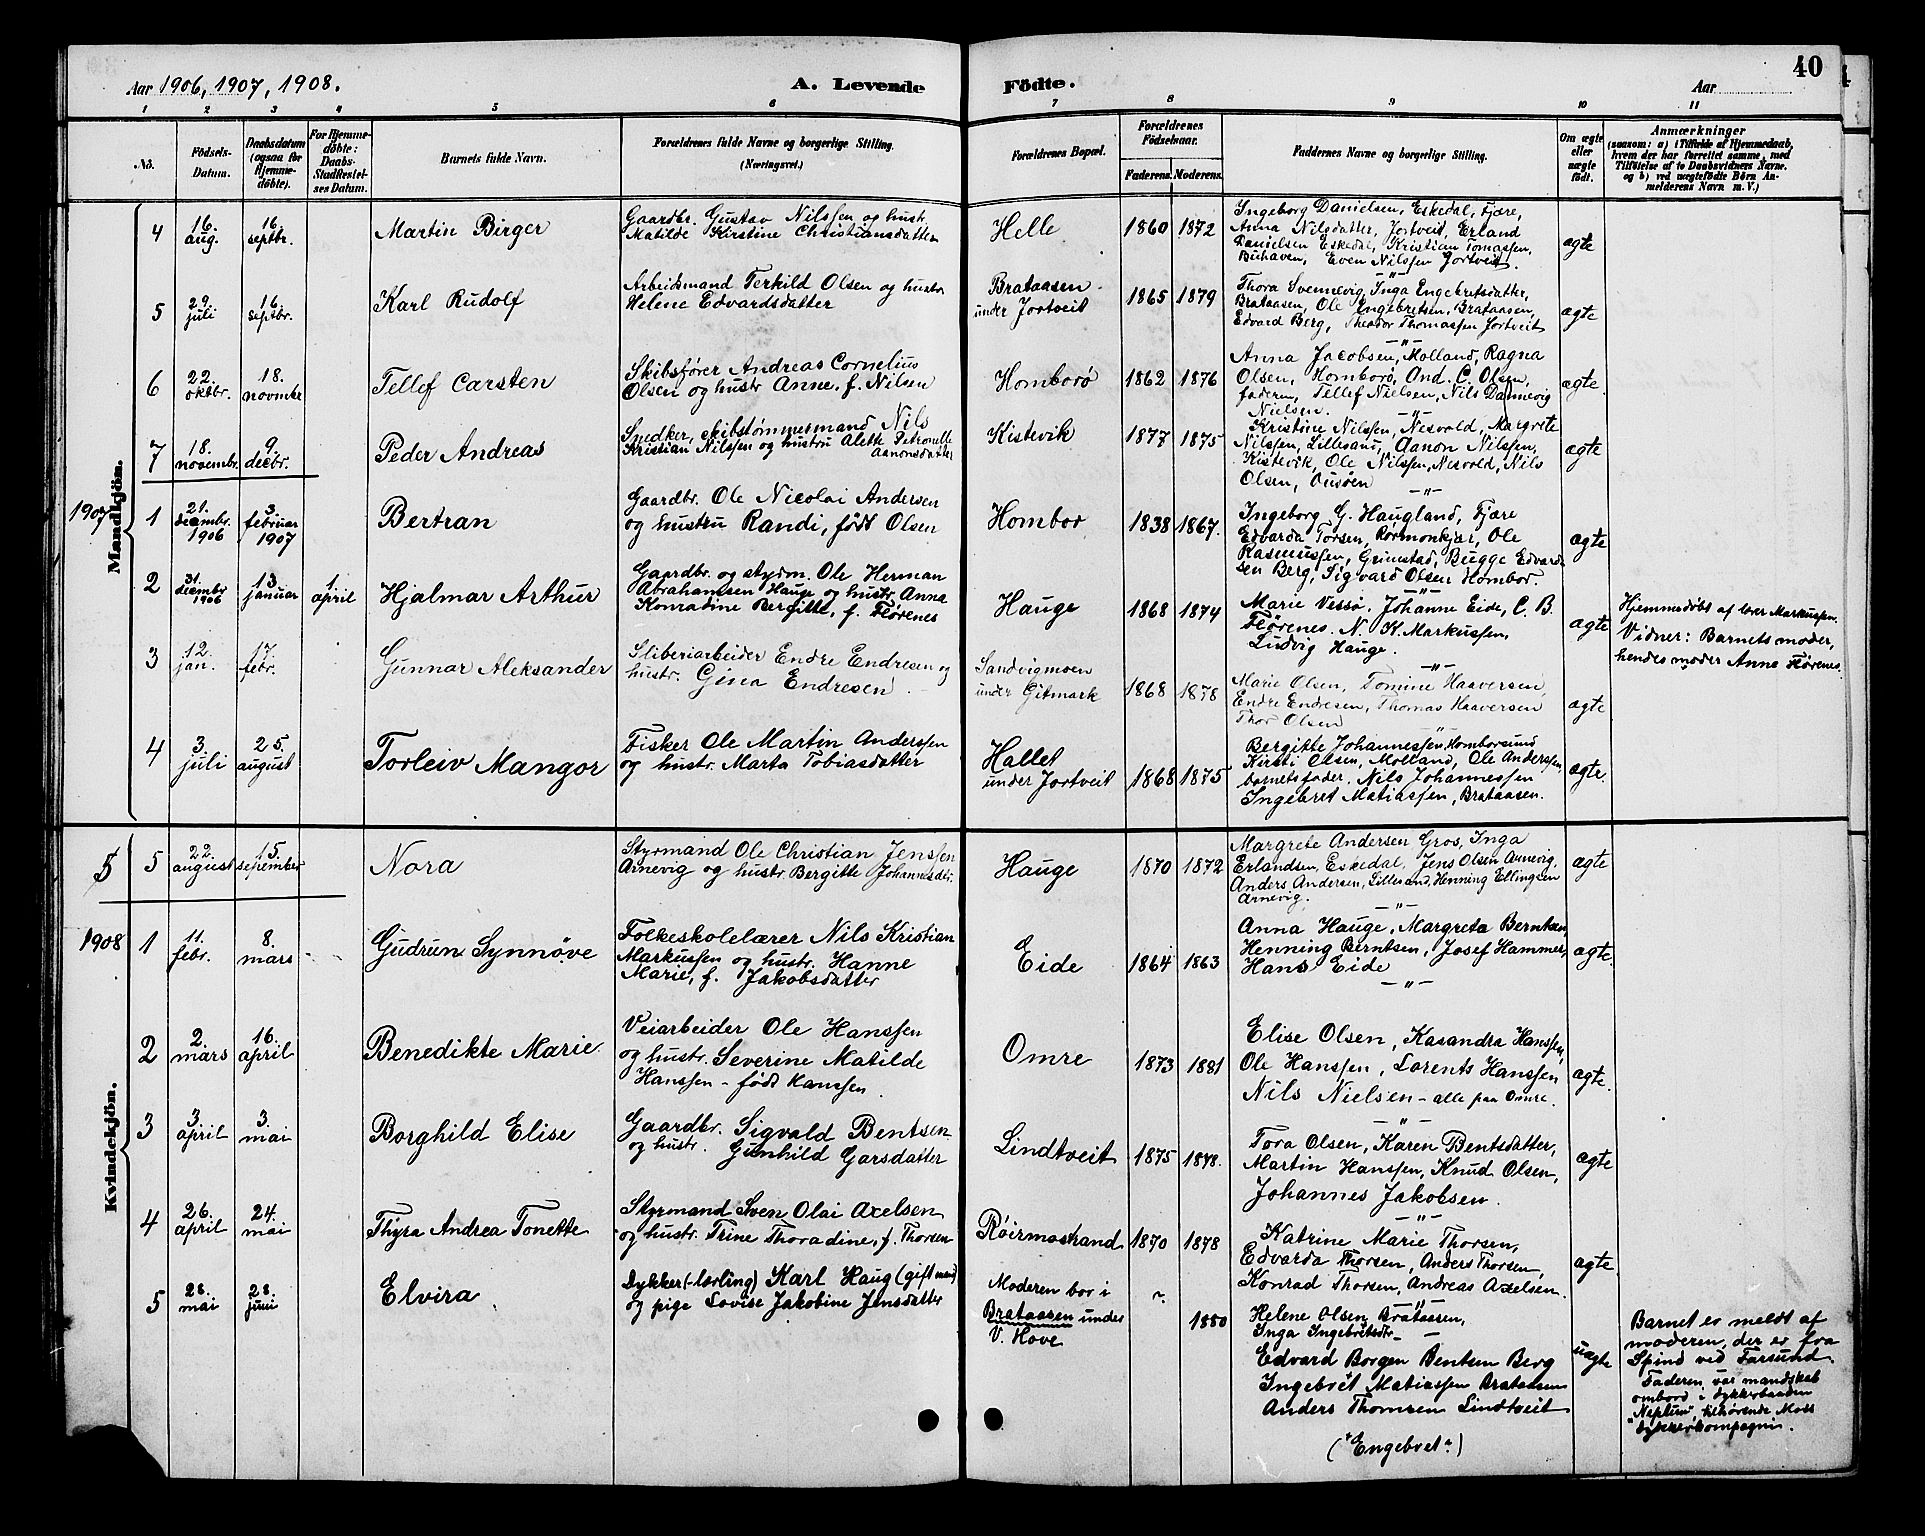 40
Aar 1906, 1907, 1908.
A. Levende Fødte.
Aar
1 2 3 4 5 6 7 8 9 10 11
No.
Födsels-Datum.
Daabsdatum (ogsaa for Hjemmedöbte).
For Hjemmedöbte: Daabs-Stadfestelses Datum.
Barnets fulde Navn.
Forældrenes fulde Navne og borgerlige Stilling. (Næringsvei.)
Forældrenes Bopæl.
Forældrenes Födselsaar.
Faderens. Moderens.
Faddernes Navne og borgerlige Stilling.
Om ægte eller uægte födt.
Anmærkninger
(saasom: a) i Tilfælde af Hjemmedaab, hvem der har forrettet samme, med Tilföielse af to Daabsvidners Navne. og b) ved uægtefödte Börn Anmelderens Navn m. V.)
Mandkjön.
4 16. aug. 16. septbr. Martin Birger
Gaardbr. Gustav Nilssen og hustr.
Matilde Kirstine Christiansdatter
Helle 1860 1872
Ingeborg Danielsen, Eskedal, Fjære,
Anna Nilsdatter, Jortveit, Erland
Danielsen Eskedal, Kristian Tomassen,
Buhaven, Even Nilssen Jortveit.
ægte
5 29. juli 16. septbr. Karl Rudolf
Arbeidsmand Terkild Olsen og hustr
Helene Edvardsdatter
Brataasen under Jortveit 1865 1879
Thora Svennevig, Inga Engebretsdatter,
Brataasen, Ole Engebretsen, Brataasen,
Edvard Berg, Theodor Thomassen Jortveit
ægte
6 22. oktbr. 18. novmbr Tellef Carsten
Skibsfører Andreas Cornelius
Olsen og hustr Anne, f. Nilsen
Homborø 1862 1876
Anna Jacobsen, Molland, Ragna
Olsen, Homborø, And. C. Olsen,
faderen, Tellef Nielsen, Nils Dannevig
Nielsen.
ægte
7 18. novembr. 9. decbr. Peder Andreas
Snedker, skibstømmermand Nils
Kristian Nilssen og hustru Alette Petronelle
Aanonsdatter
Kistevik 1877 1875
Kristine Nilssen, Nesvold, Margrete
Nilssen, Lillesand, Aanon Nilssen,
Kistevik, Ole Nilssen, Nesvold, Nils
Olsen,
ægte
1907
1 21. decembr. 1906 3. februar 1907 Bertran
Gaardbr. Ole Nicolai Andersen
og hustru Randi, født Olsen
Hombor 1838 1867.
Ingeborg G. Haugland, Fjære
Edvarda Torsen, Rørmonkjær, Ole
Rasmussen, Grimstad, Bugge Edvard-
sen Berg, Sigvard Olsen Hombor.
ægte
2 31. decembr 1906 13. januar 1. april Hjalmar Arthur
Gaardbr. og stydm. Ole Herman
Abrahamsen Hauge og hustr. Anna
Konradine Bergitte, f. Flørenes
Hauge 1868 1874
Marie Vessø, Johanne Eide, C. B.
Flørenes. N. K. Markussen,
Ludvig Hauge.
ægte
Hjemmedøbt af lærer Markussen.
Vidner: Barnets moder,
hendes moder Anna Flørenes.
3 12. jan. 17. febr. Gunnar Aleksander
Sliberiarbeider Endre Endresen og
hustr. Gina Endresen
Sandvigmoen under Gitmark 1868 1878
Marie Olsen, Tomine Haaversen,
Endre Endresen, Thomas Haaversen
Thor Olsen
ægte
4 3. juli 25. august Torleiv Mangor
Fisker Ole Martin Anderssen
og hustr. Marta Tobiasdatter
Hallet under Jortveit 1868 1875
Bergitte Johannessen, Homborsund
Kirsti Olsen, Molland, Ole Anderssen,
barnets fader, Nils Johannessen
Ingebret Matiassen, Brataasen.
ægte.
Kvindekjön.
5 5 22. august 15. september Nora
Styrmand Ole Christian Jenssen
Arnevig og hustr. Bergitte Johannesdtr.
Hauge 1870 1872
Margrete Andersen Gros, Inga
Erlandsen, Eskedal, Jens Olsen Arnevig,
Anders Andersen, Lillesand, Henning Ellingsen
Arnevig.
ægte
1908
1 11. febr. 8. mars Gudrun Synnøve
Folkeskolelærer Nils Kristian
Markussen og hustr. Hanne
Marie, f. Jakobsdatter
Eide 1864 1863
Anna Hauge, Margreta Berntsen,
Henning Berntsen, Josef Hammer,
Hans Eide
ægte.
2 2. mars 16. april Benedikte Marie
Veiarbeider Ole Hanssen
og hustr. Severine Matilde
Hanssen – født Hanssen
Omre 1873 1881
Elise Olsen, Kasandra Hanssen,
Ole Hanssen, Lorents Hanssen
Nils Nielsen – alle paa Omre.
ægte.
3 3. april 3. mai Borghild Elise
Gaardbr. Sigvald Bentsen
og hustr. Gunhild Garsdatter
Lindtveit 1875 1878.
Tora Olsen, Karen Bentsdatter,
Martin Hanssen, Knud Olsen,
Johannes Jakobsen.
ægte
4 26. april 24. mai Thyra Andrea Tonette
Styrmand Sven Olai Axelsen
og hustr. Trine Thoradine, f. Thorsen
Røirmostrand 1870 1878
Katrine Marie Thorsen,
Edvarda Thorsen, Anders Thorsen,
Konrad Thorsen, Andreas Axelsen.
ægte
5 28. mai 28. juni Elvira
Dykker(-lærling) Karl Haug (gift mand)
og pige Lovise Jakobine Jensdatter
Moderen bor i Brataasen under V. Hove ? 1880
Helene Olsen Brataasen,
Inga Ingebretsdtr –
Edvard Borgen Bentsen Berg
Ingebret Matiassen Brataasen
Anders Thomsen Lindtveit
("Engebret"?)
uægte
Barnet er meldt af
moderen, der er fra
Spind ved Farsund.
Faderen var mandskab
ombord i dykkerbaaden
"Neptun", tilhørende Moss
dykkerkompagni.